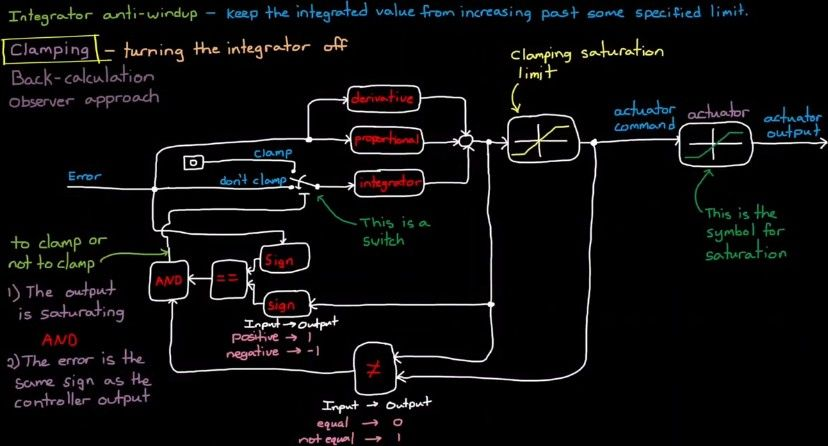 Integrator anti-windup – keep the integrated value from increasing past some specified limit.
Clamping – turning the integrator off
Back-calculation
observer approach
Clamping saturation
limit
derivative
proportional
integrator
0
clamp
don't clamp
Error
This is a
switch
actuator
command
actuator
actuator
output
This is the
symbol for
saturation
to clamp or
not to clamp
AND
==
Sign
Sign
Input → Output
positive → 1
negative → -1
1) The output
is saturating
AND
2) The error is the
same sign as the
controller output
≠
Input → Output
equal → 0
not equal → 1